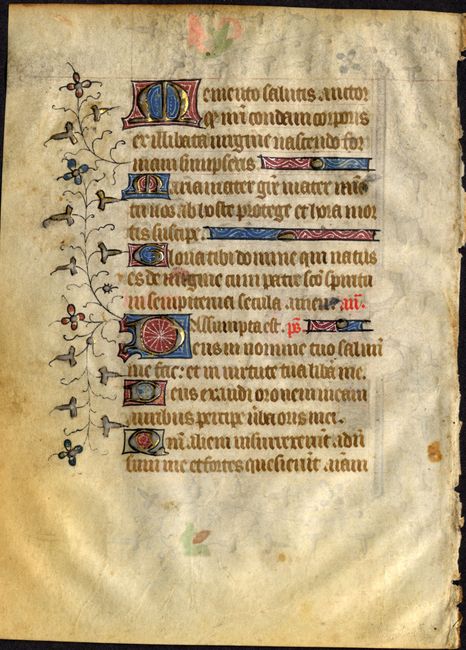 Memento salutis auctor
q̄ nr̄i condam corporis
ex illibata uirgine nascendo for
mam sumpseris
Maria mater grē mater mīe
tu nos ab hoste protege et hora mor
tis suscipe.
Gloria tibi domine qui natus
es de uirgine cum patre sc̄o spiritu
in sempiterna secula. amen. an̄.
Assumpta est. ps̄
Deus in nomine tuo saluū
me fac: et in uirtute tua libā me.
Deus exaudi orōnem meam
auribus percipe ūba oris mei.
Qm̄ alieni insurrexert̄ . adū
sum me et fortes quesierūt . aīam